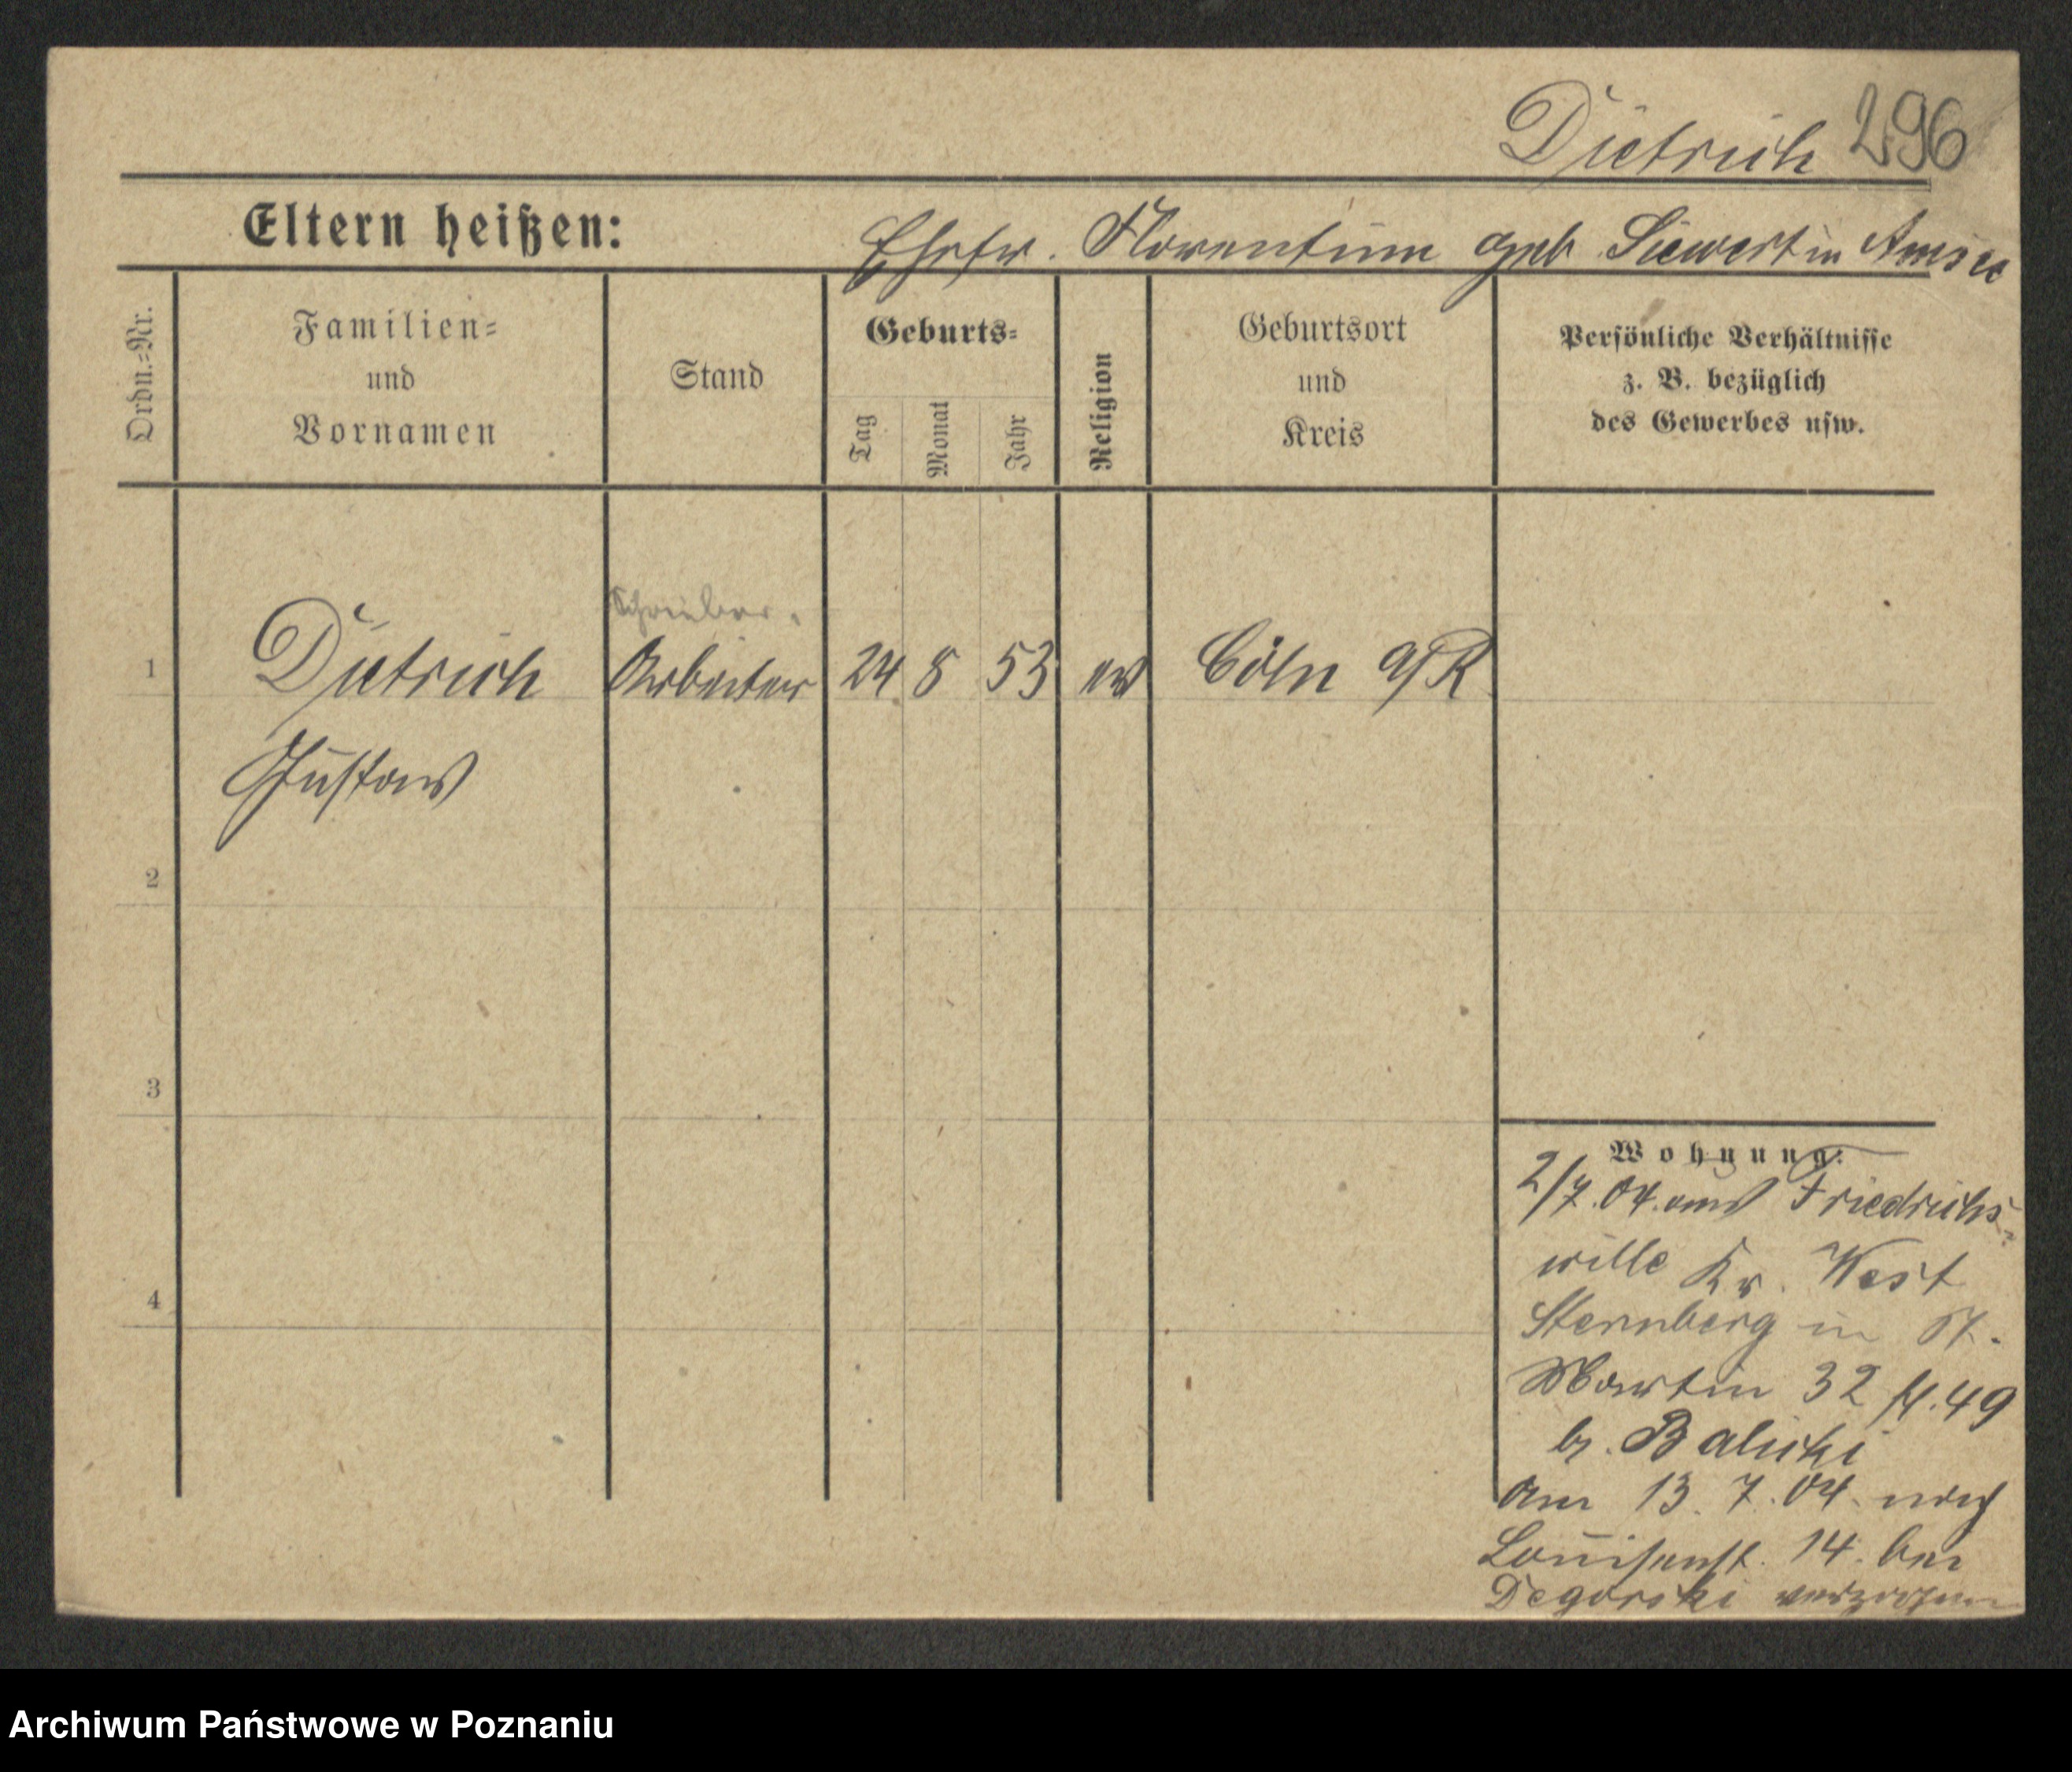 Dietrich 296
Eltern heißen:
Ehefr. Florentine geb Siewert in
Ordn.=Nr.
Familien=
und
Vornamen
Stand
Geburts=
Tag
Monat
Jahr
Religion
Geburtsort
und
Kreis
Persönliche Verhältnisse
z. B. bezüglich
des Gewerbes usw.
Schreiber.
1 Dietrich Arbeiter 24 8 53 ev Cöln a/R
Gustav
2
3
4
Wohnung:
2/7. 04. aus Friedrichs-
wille Kr. West
Sternberg in St.
Martin 32 49
b. Balicki
Am 13. 7. 04. nach
Louisenst. 14. bei
Degorski verzogen
Archiwum Państwowe w Poznaniu